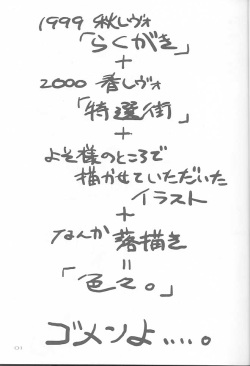 1999 秋レヴォ
「らくがき」
+
2000 春レヴォ
「特選街」
+
よそ様のところで
描かせていただいた
イラスト
+
なんか 落描き
=
「色々。」
ゴメンよ.....。